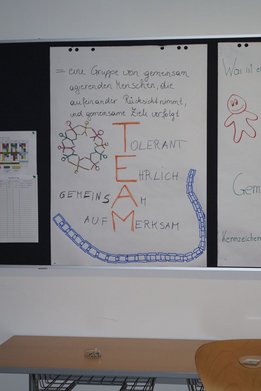 = eine Gruppe von gemeinsam
agierenden Menschen, die
aufeinander Rücksicht nimmt,
und gemeinsame Ziele verfolgt
TOLERANT
EHRLICH
GEMEINSAM
AUFMERKSAM
Was ist
Gem
Kennzeichen